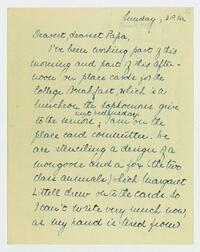 Sunday, 3 P.M.
Dearest, dearest Papa,
I've been working part of this
morning and part of this after-
noon on place cards for the
College Breakfast, which is a
luncheon the sophomores give
next Wednesday
to the seniors; I am on the
place card committee. We
are stenciling a design of a
mongoose and a fox (the two
class animals) which Margaret
Littell drew on to the cards. So
I can't write very much now,
as my hand is tired from